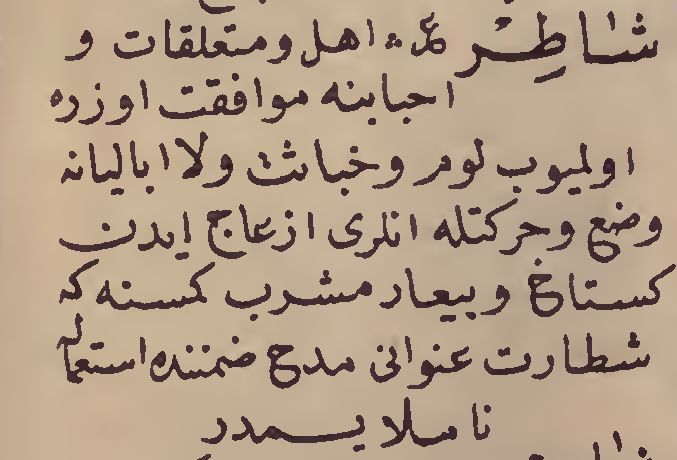 شاطِرْ ع‍ * اهل ومتعلقات و
احبابنه موافقت اوزره
اولميوب لوم وخباثت ولا ابالیانه
وضع وحركتله انلرى ازعاج ايدن
كستاخ وبیعار مشرب كمسنه كه
شطارت عنوانى مدح ضمننده استعمالى
ناملایمدر